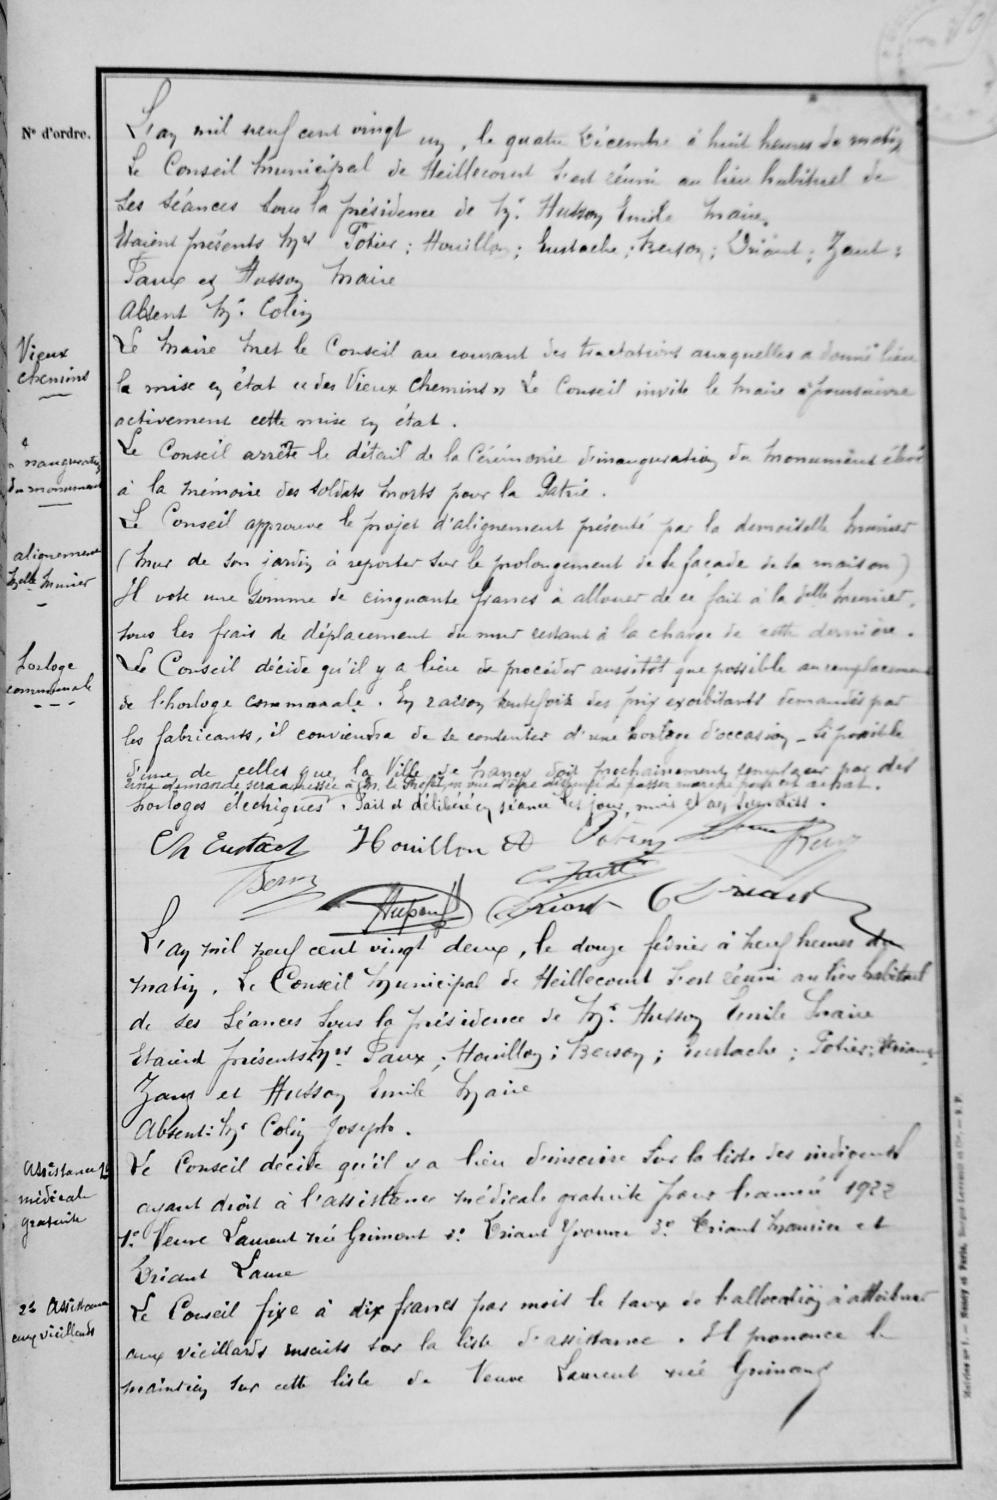 N° d'ordre.
L'an mil neuf cent vingt un, le quatre Décembre à huit heures du matin
Le Conseil Municipal de Heillecourt s'est réuni au lieu habituel de
ses séances sous la présidence de Mr. Husson Emile Maire.
Etaient présents Mrs Potier; Houillon; Eustache; Berson; Driant; Zant;
Paux et Husson Maire
Absent Mr. Colin
Vieux
chemins
Le Maire met le Conseil au courant des tractations auxquelles a donné lieu
la mise en état « des Vieux chemins » Le Conseil invite le Maire à poursuivre
activement cette mise en état.
Inauguration
du monument
Le Conseil arrête le détail de la Cérémonie d'inauguration du Monument élevé
à la mémoire des soldats morts pour la Patrie.
alignement
Melle Munier
Le Conseil approuve le projet d'alignement présenté par la demoiselle Munier
(Mur de son jardin à reporter sur le prolongement de la façade de sa maison)
Il vote une somme de cinquante francs à allouer de ce fait à la delle Munier,
tous les frais de déplacement du mur restant à la charge de cette dernière.
horloge
communale
Le Conseil décide qu'il y a lieu de procéder aussitôt que possible au remplacement
de l'horloge communale. En raison toutefois des prix exorbitants demandés par
les fabricants, il conviendra de se contenter d'une horloge d'occasion - si possible
d'une de celles que la Ville de Nancy doit prochainement remplacer par des
Une demande sera adressée à Mr. le Préfet en vue d'être dispensé de passer marché pour cet achat.
horloges électriques. Fait et délibéré en séance les jour, mois et an susdits.
Ch Eustach Houillon Potier
Berson Husson Zant Driant
L'an mil neuf cent vingt deux, le douze février à neuf heures du
matin. Le Conseil Municipal de Heillecourt s'est réuni au lieu habituel
de ses séances sous la présidence de Mr. Husson Emile Maire
Etaient présents Mrs Paux; Houillon; Berson; Eustache; Potier; Driant
Zant et Husson Emile Maire
Absent: Mr Colin Joseph.
Assistance
médicale
gratuite
Le Conseil décide qu'il y a lieu d'inscrire sur la liste des indigents
ayant droit à l'assistance médicale gratuite pour l'année 1922
1° Veuve Laurent née Grimont 2° Driant Yvonne 3° Driant Maurice et
Driant Laure
2° Assistance
aux vieillards
Le Conseil fixe à dix francs par mois le taux de l'allocation à attribuer
aux vieillards inscrits sur la liste d'assistance. Il prononce le
maintien sur cette liste de Veuve Laurent née Grimont